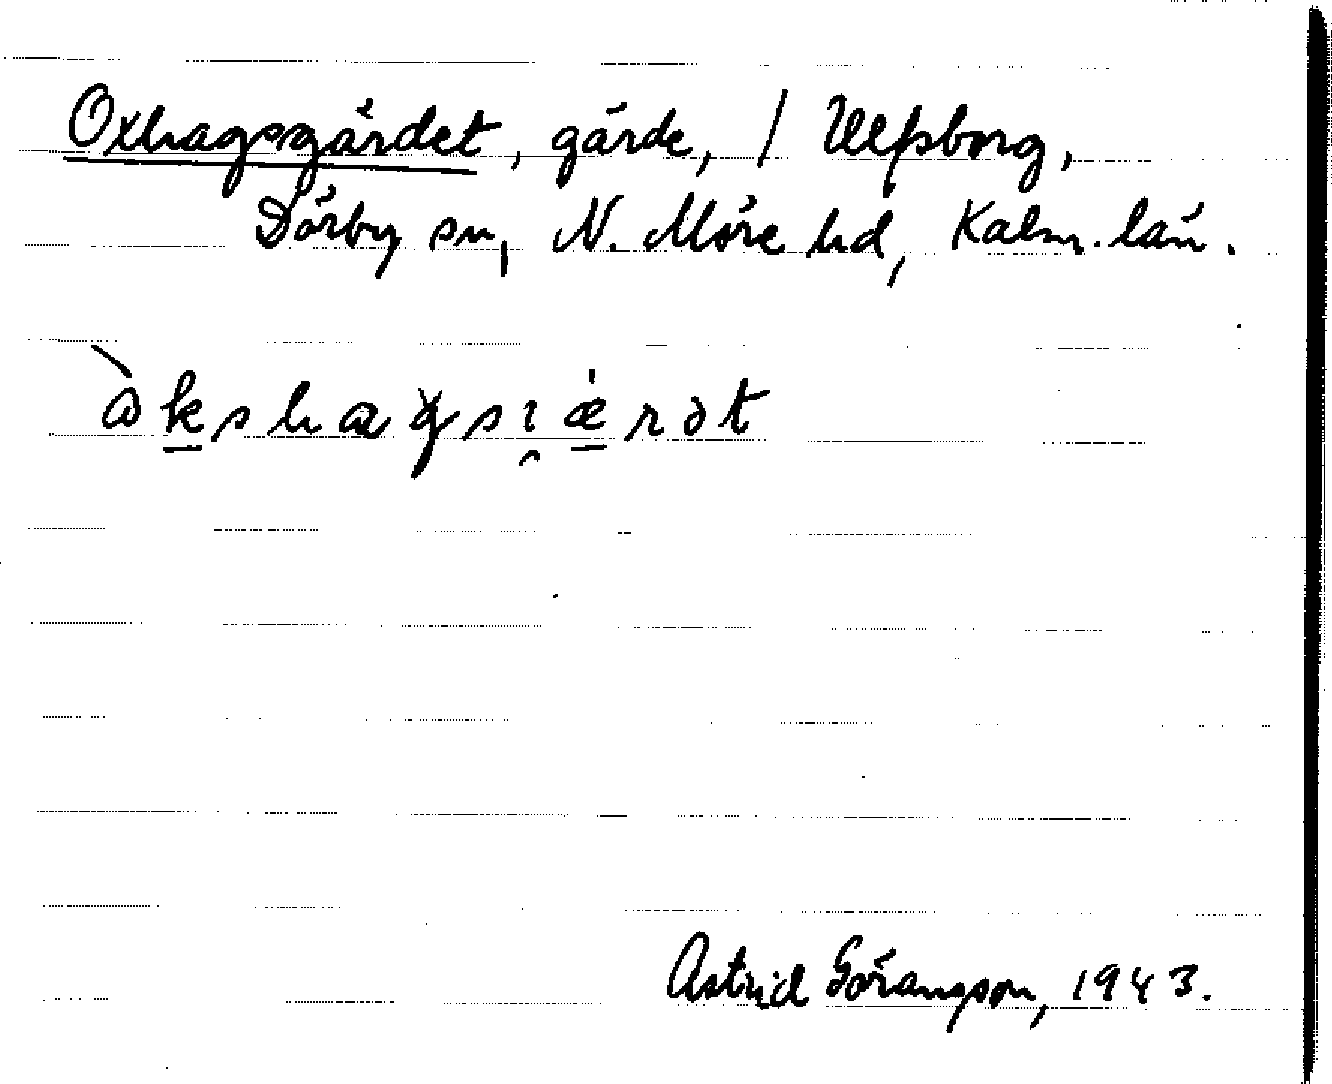 Oxhagsgärdet, gärde, / Ulfsborg,
Dörby sn, N. Möre hd, Kalm. län.
Astrid Göransson, 1943.